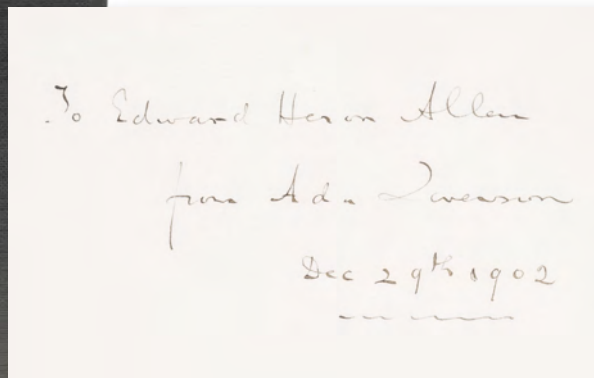 To Edward Heron Allen
from Ada Leverson
Dec 29th 1902